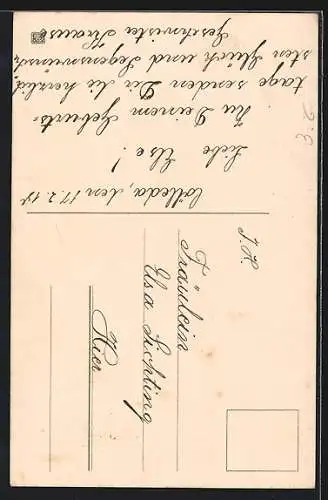 Cölleda, den 17.2.18
Liebe Else!
Zu Deinem Geburts-
tage senden Dir die herzlich-
sten Glück und Segenswünsche
Geschwister Kraus
J. H.
Fräulein
Elsa Sichting
Hier